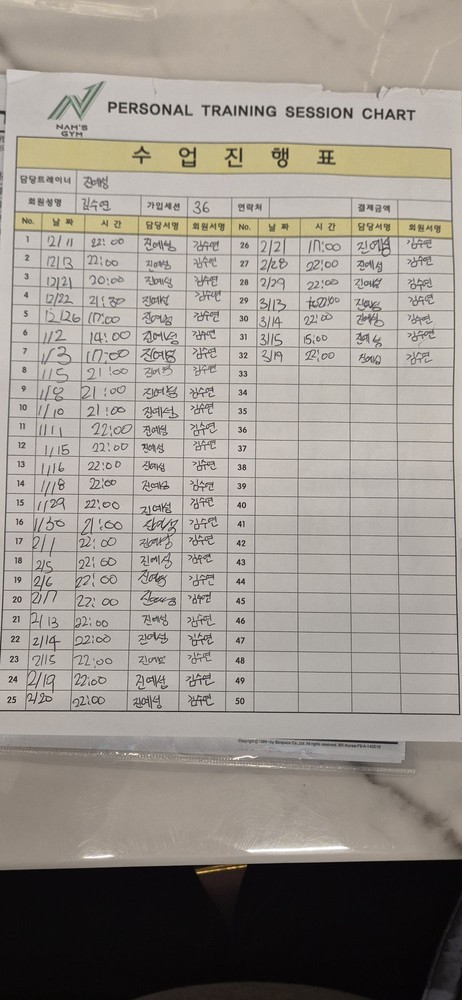 NAM'S
GYM
PERSONAL TRAINING SESSION CHART
수 업 진 행 표
담당트레이너 진예성
회원성명 김수연 가입세션 36 연락처 결제금액
No. 날 짜 시 간 담당서명 회원서명 No. 날 짜 시 간 담당서명 회원서명
1 12/11 22:00 진예성 김수연 26 2/21 17:00 진예성 김수연
2 12/13 22:00 진예성 김수연 27 2/28 22:00 진예성 김수연
3 12/21 20:00 진예성 김수연 28 2/29 22:00 진예성 김수연
4 12/22 21:30 진예성 김수연 29 3/13 22:00 진예성 김수연
5 12/26 17:00 진예성 김수연 30 3/14 22:00 진예성 김수연
6 1/2 14:00 진예성 김수연 31 3/15 15:00 진예성 김수연
7 1/3 17:00 진예성 김수연 32 3/19 22:00 진예성 김수연
8 1/5 21:00 진예성 김수연 33
9 1/8 21:00 진예성 김수연 34
10 1/10 21:00 진예성 김수연 35
11 1/11 22:00 진예성 김수연 36
12 1/15 22:00 진예성 김수연 37
13 1/16 22:00 진예성 김수연 38
14 1/18 22:00 진예성 김수연 39
15 1/29 22:00 진예성 김수연 40
16 1/30 21:00 진예성 김수연 41
17 2/1 22:00 진예성 김수연 42
18 2/5 22:00 진예성 김수연 43
19 2/6 22:00 진예성 김수연 44
20 2/7 22:00 진예성 김수연 45
21 2/13 22:00 진예성 김수연 46
22 2/14 22:00 진예성 김수연 47
23 2/15 22:00 진예성 김수연 48
24 2/19 22:00 진예성 김수연 49
25 2/20 22:00 진예성 김수연 50